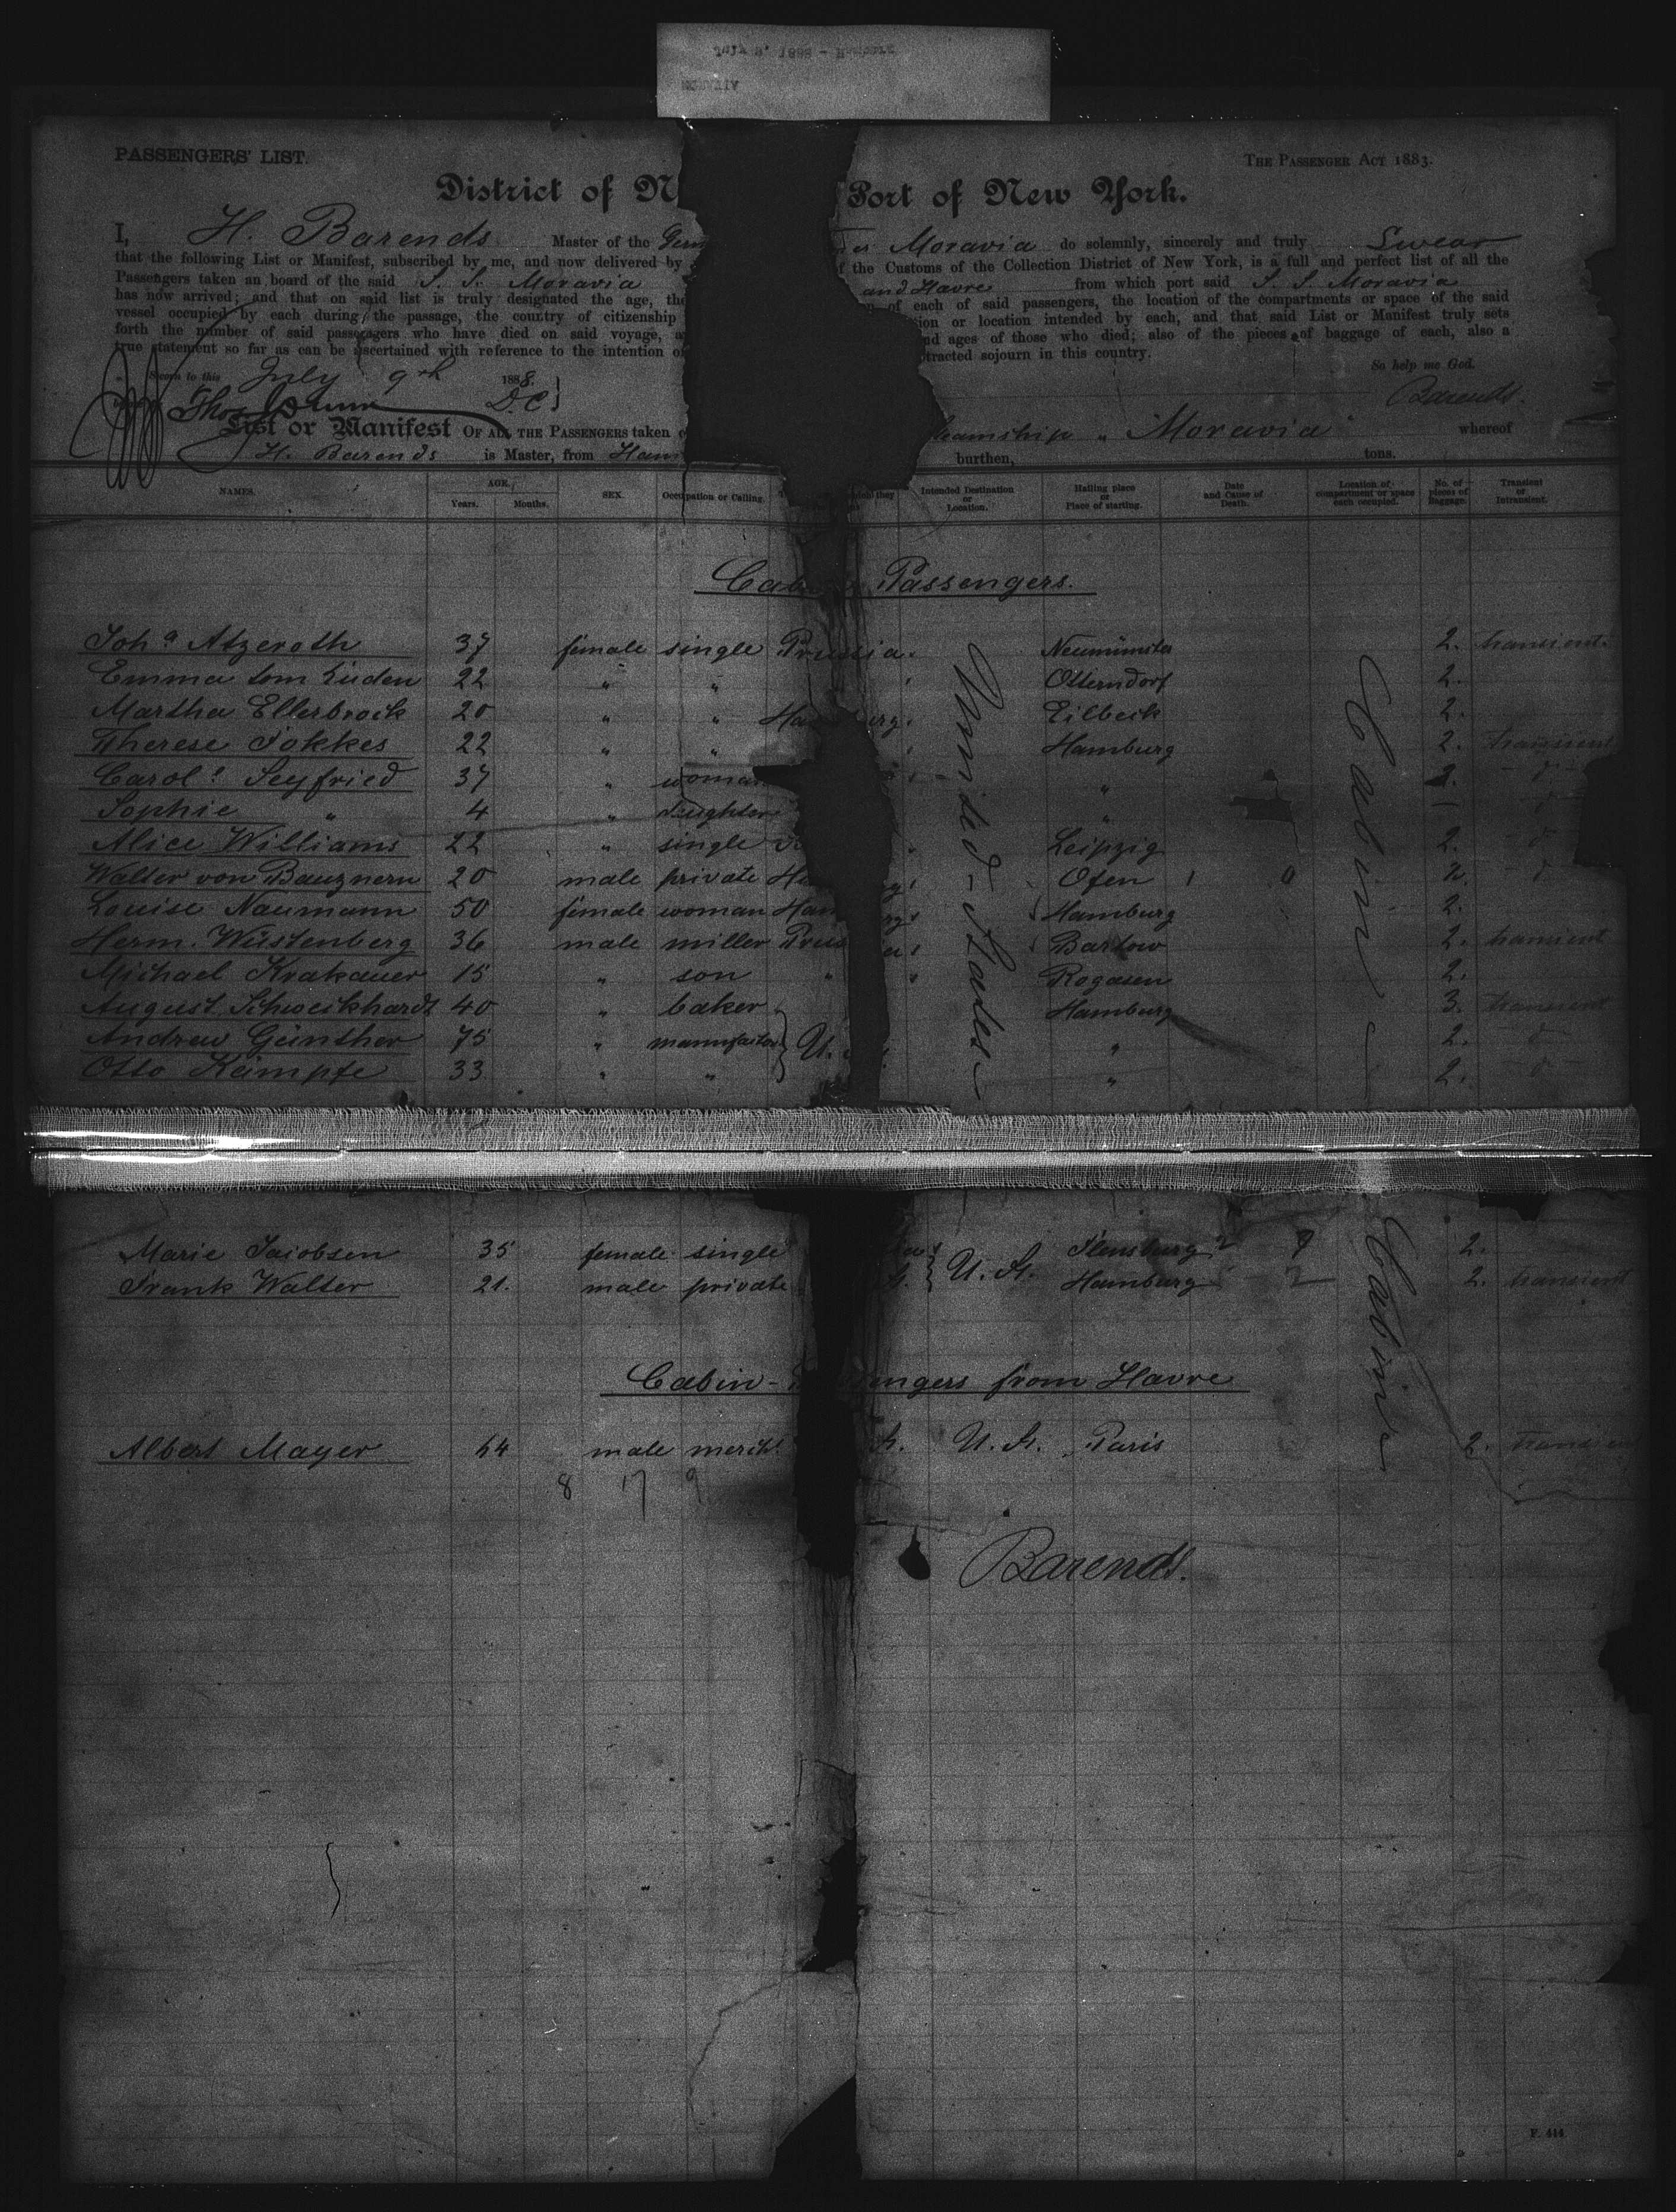 PASSENGERS' LIST.
THE PASSENGER ACT 1883.
District of N Port of New York.
I, H. Barends Master of the Germ er Moravia do solemnly, sincerely and truly Swear
that the following List or Manifest, subscribed by me, and now delivered by f the Customs of the Collection District of New York, is a full and perfect list of all the
Passengers taken on board of the said S. S. Moravia and Havre from which port said S. S. Moravia
has now arrived; and that on said list is truly designated the age, the of each of said passengers, the location of the compartments or space of the said
vessel occupied by each during the passage, the country of citizenship sion or location intended by each, and that said List or Manifest truly sets
forth the number of said passengers who have died on said voyage, a nd ages of those who died; also of the pieces of baggage of each, also a
true statement so far as can be ascertained with reference to the intention o tracted sojourn in this country.
Sworn to this July 9th 1888. So help me God.
Thos D.C. Barends.
List or Manifest OF ALL THE PASSENGERS taken o teamship "Moravia" whereof
H. Barends is Master, from Ham burthen, tons.
NAMES. AGE. Years. Months. SEX. Occupation or Calling. they Intended Destination or Location. Mailing place or Place of starting. Date and Cause of Death. Location of compartment or space each occupied. No. of pieces of Baggage. Transient or Intransient.
Cabin Passengers.
Joh.a Atzeroth 37 female single Prussia. Neumünster 2. transient.
Emma tom Lüden 22 " " Otterndorf 2.
Martha Ellerbrock 20 " " Ha rg. Eilbeck 2.
Therese Fokkes 22 " " Hamburg 2. transient
Carol.e Seyfried 37 " woman " 2. d
Sophie " 4 " daughter " – d
Alice Williams 22 " single Leipzig 2. d
Walter von Bauznern 20 male private H g. Ofen 2. d
Louise Naumann 50 female woman Ham rg. Hamburg 2.
Herm. Wüstenberg 36 male miller Prus a. Bartow 2. transient
Michael Krakauer 15 " son " Rogasen 2.
August Schweikhardt 40 " baker Hamburg 3. transient
Andrew Günther 75 " manufactor U. " 2. d
Otto Kämpfe 33 " " " 2. d
United-States
Cabin
Marie Jacobsen 35 female single a. U. St. Flensburg 2.
Frank Walter 21. male private t. Hamburg 2. transient
Cabin
Cabin- engers from Havre
Albert Mayer 44 male mercht. t. U. St. Paris 2. transient
8 17 9
Barends.
F. 444